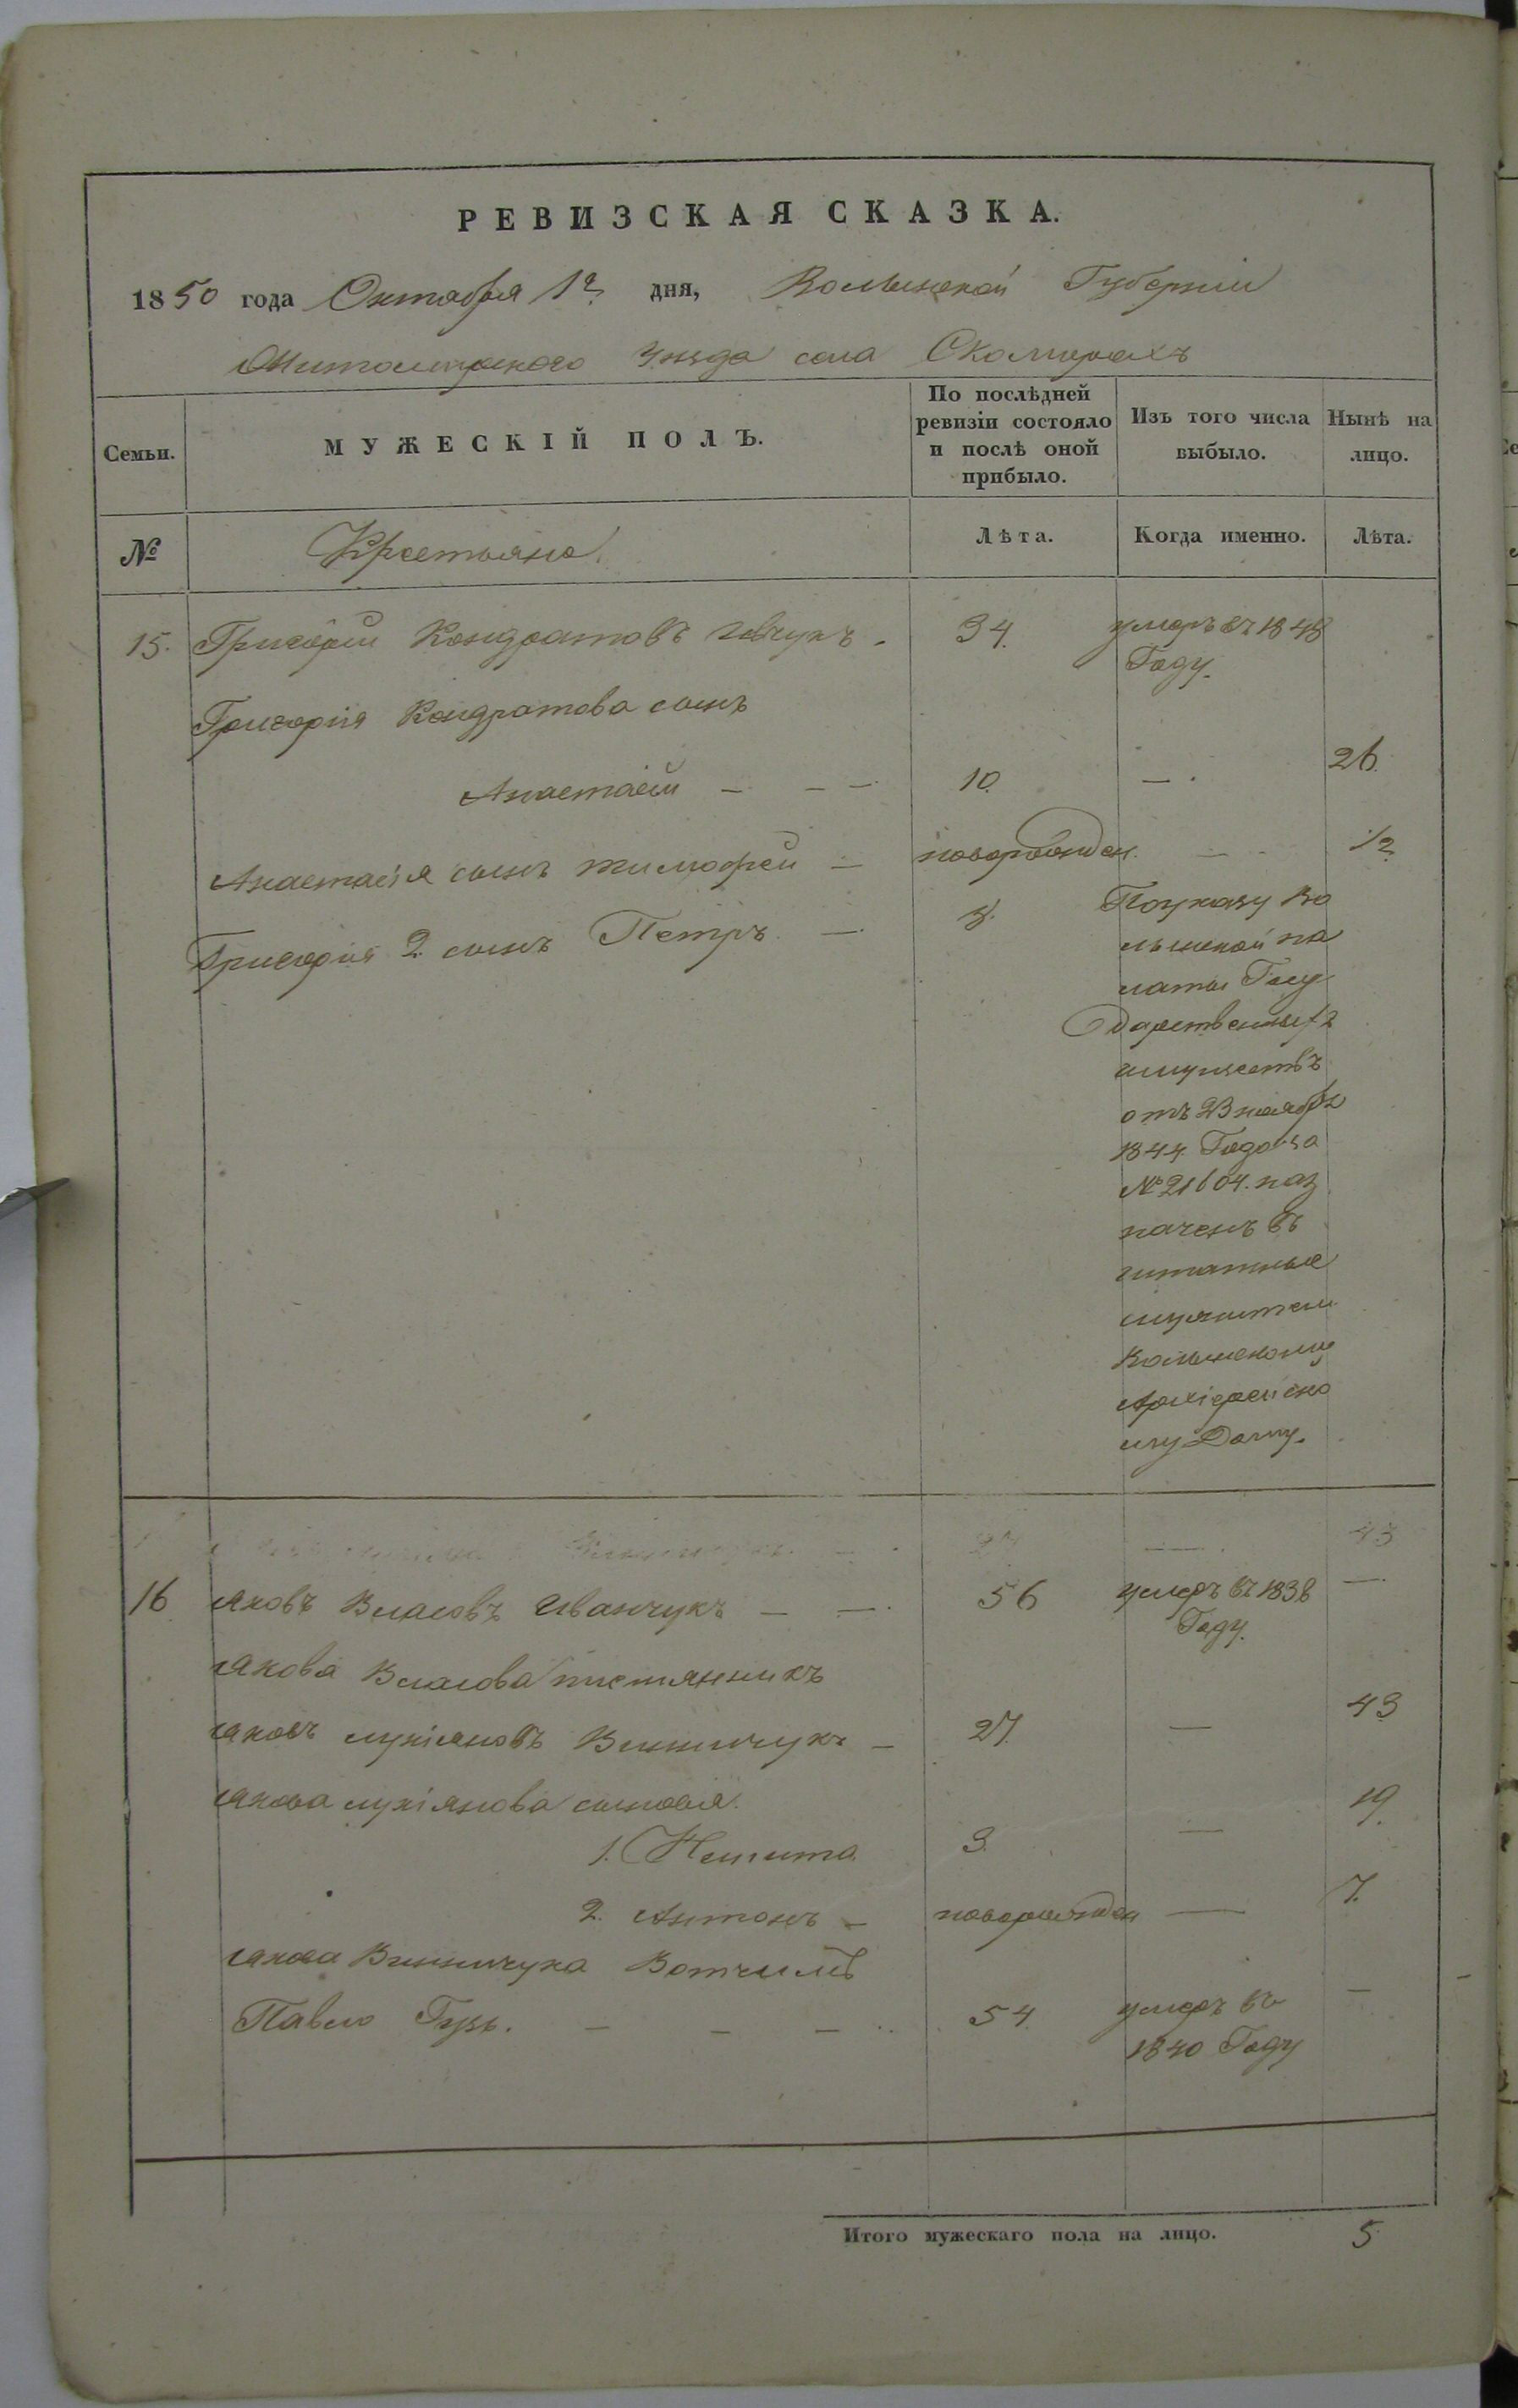 РЕВИЗСКАЯ СКАЗКА.
1850 года Октября 1го дня, Волынской Губерніи
Житомирского Уѣзда села Скоморохъ
Семьи.
МУЖЕСКІЙ ПОЛЪ.
По послѣдней ревизіи состояло и послѣ оной прибыло.
Изъ того числа выбыло.
Нынѣ на лицо.
№ Крестьяне Лѣта. Когда именно. Лѣта.
15. Григорій Кондратовъ 34. умеръ въ 1848
Году.
Григорія Кондратова сынъ
Анастасій — — — 10. — 26.
Анастасія сынъ Тимофей — новорожден. — 1/2
Григорія 2. сынъ Петръ — 8. По указу Во
лынской па
латы Госу
дарственныхъ
имуществъ
отъ 23 ноября
1844 Года за
№ 21604. наз
наченъ въ
штатные
служители
Волынскому
Архіерейско
му Дому.
16 Яковъ Власовъ Иванчукъ — — 56 умеръ въ 1838 —
Году.
Якова Власова племянникъ
Яковъ Лукіяновъ Винничукъ — 27. — 43
Якова Лукіянова сыновья.
1. Никита 3. — 19.
2. Антонъ — новорожден — 7.
Якова Винничука Вотчимъ
Павло Гузь. — — — 54. умеръ въ —
1840 Году
Итого мужескаго пола на лицо. 5